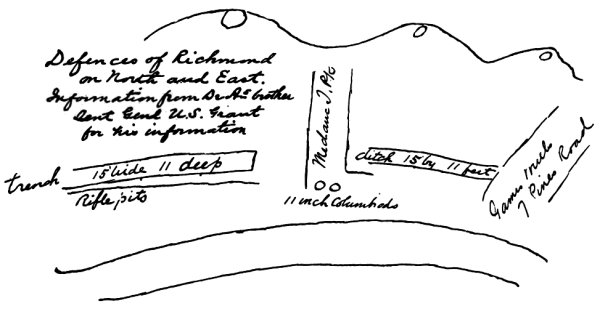 Defences of Richmond
on North and East.
Information from Dr A's brother
Sent Genl U.S. Grant
for his information
trench
15 wide 11 deep
Rifle pits
Mechanc T. P/c
11 inch Columbiads
ditch 15 by 11 feet
Gaines Mill
7 Pines Road